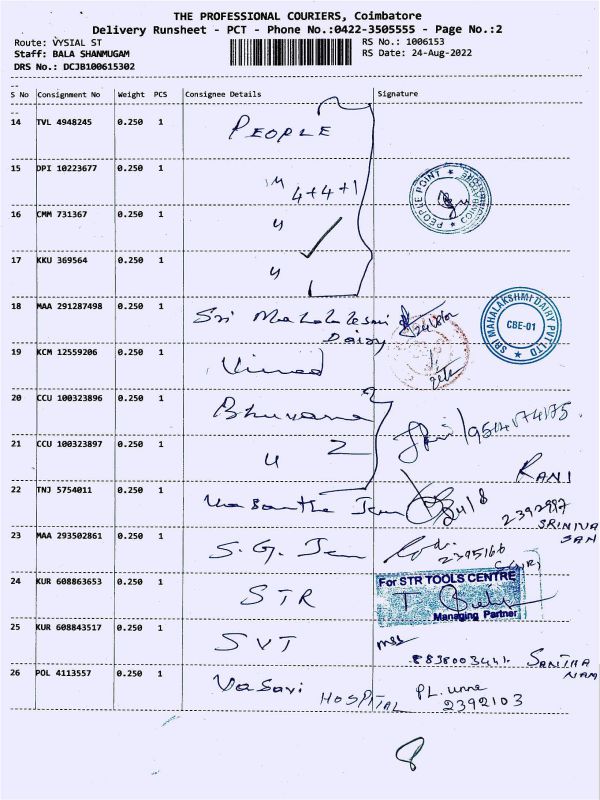 THE PROFESSIONAL COURIERS, Coimbatore
Delivery Runsheet - PCT - Phone No.:0422-3505555 - Page No.:2
Route: VYSIAL ST RS No.: 1006153
Staff: BALA SHANMUGAM RS Date: 24-Aug-2022
DRS No.: DCJB100615302
S No Consignment No Weight PCS Consignee Details Signature
14 TVL 4948245 0.250 1 PEOPLE
15 DPI 10223677 0.250 1 4+4+1
PEOPLE POINT * COIMBATORE *
16 CMM 731367 0.250 1 "
17 KKU 369564 0.250 1 "
18 MAA 291287498 0.250 1 Sri Mahalaksmi Dairy
SRI MAHALAKSHMI DAIRY PVT LTD * CBE-01
19 KCM 12559206 0.250 1 Vinod
20 CCU 100323896 0.250 1 Bhuvana
21 CCU 100323897 0.250 1 " 2
RANI
22 TNJ 5754011 0.250 1 Vasantha 24/8 2392997
SRINIVASAN
23 MAA 293502861 0.250 1 S.G. 2395166
24 KUR 608863653 0.250 1 STR
For STR TOOLS CENTRE
Managing Partner
25 KUR 608843517 0.250 1 SVT
8838003441. SANTHANAM
26 POL 4113557 0.250 1 Vasavi HOSPITAL 2392103
8